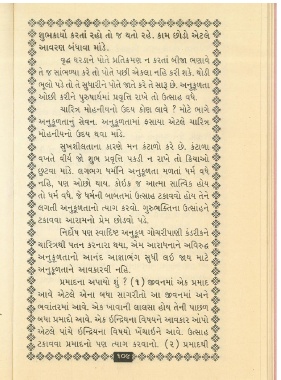 શુભકાર્યો કરતાં રહો તો જ થતો રહે. કામ છોડો એટલે
આવરણ બંધાવા માંડે.
વૃદ્ધ ઘરડાને પોતે પ્રતિક્રમણ ન કરતાં બીજા ભણાવે
તે જ સાંભળ્યા કરે તો પોતે પછી એકલા નહિ કરી શકે. થોડી
ભૂલો પડે તો તે સુધારીને પોતે જાતે કરે તે સારૂ છે. અનુકૂળતા
ઓછી કરીને પુરુષાર્થમાં પ્રવૃત્તિ રાખે તો ઉત્સાહ વધે.
ચારિત્ર મોહનીયનો ઉદય કોણ લાવે ? મોટે ભાગે
અનુકૂળતાનું સેવન. અનુકૂળતામાં ફસાયા એટલે ચારિત્ર
મોહનીયનો ઉદય થવા માંડે.
સુખશીલતાના કારણે મન કંટાળો કરે છે. કંટાળા
વખતે વીર્ય જો શુભ પ્રવૃત્તિ પકડી ન રાખે તો ક્રિયાઓ
છુટવા માંડે. લગભગ ધર્મીને અનુકૂળતા મળતાં ધર્મ વધે
નહિ, પણ ઓછો થાય. કોઇક જ આત્મા સાત્વિક હોય
તો ધર્મ વધે. જે ધર્મની બાબતમાં ઉત્સાહ ટકાવવો હોય તેને
લગતી અનુકૂળતાનો ત્યાગ કરવો. ગુરુભક્તિના ઉત્સાહને
ટકાવવા આરામનો પ્રેમ છોડવો પડે.
નિર્દોષ પણ સ્વાદિષ્ટ અનુકૂળ ગોચરીપાણી કંડરીકને
ચારિત્રથી પતન કરનારા થયા, એમ આરાધનાને અવિરુદ્ધ
અનુકૂળતાનો આનંદ આજ્ઞાભંગ સુધી લઇ જાય માટે
અનુકૂળતાને આવકારવી નહિ.
પ્રમાદના અપાયો શું ? (૧) જીવનમાં એક પ્રમાદ
આવે એટલે એના બધા સાગરીતો આ જીવનમાં અને
ભવાંતરમાં આવે. એક ખાવાની લાલસા હોય તેની પાછળ
બધા પ્રમાદો આવે. એક ઇન્દ્રિયના વિષયને આવકાર આપો
એટલે પાંચે ઇન્દ્રિયના વિષયો ખેંચાઇને આવે. ઉત્સાહ
ટકાવવા પ્રમાદનો પણ ત્યાગ કરવાનો. (૨) પ્રમાદથી